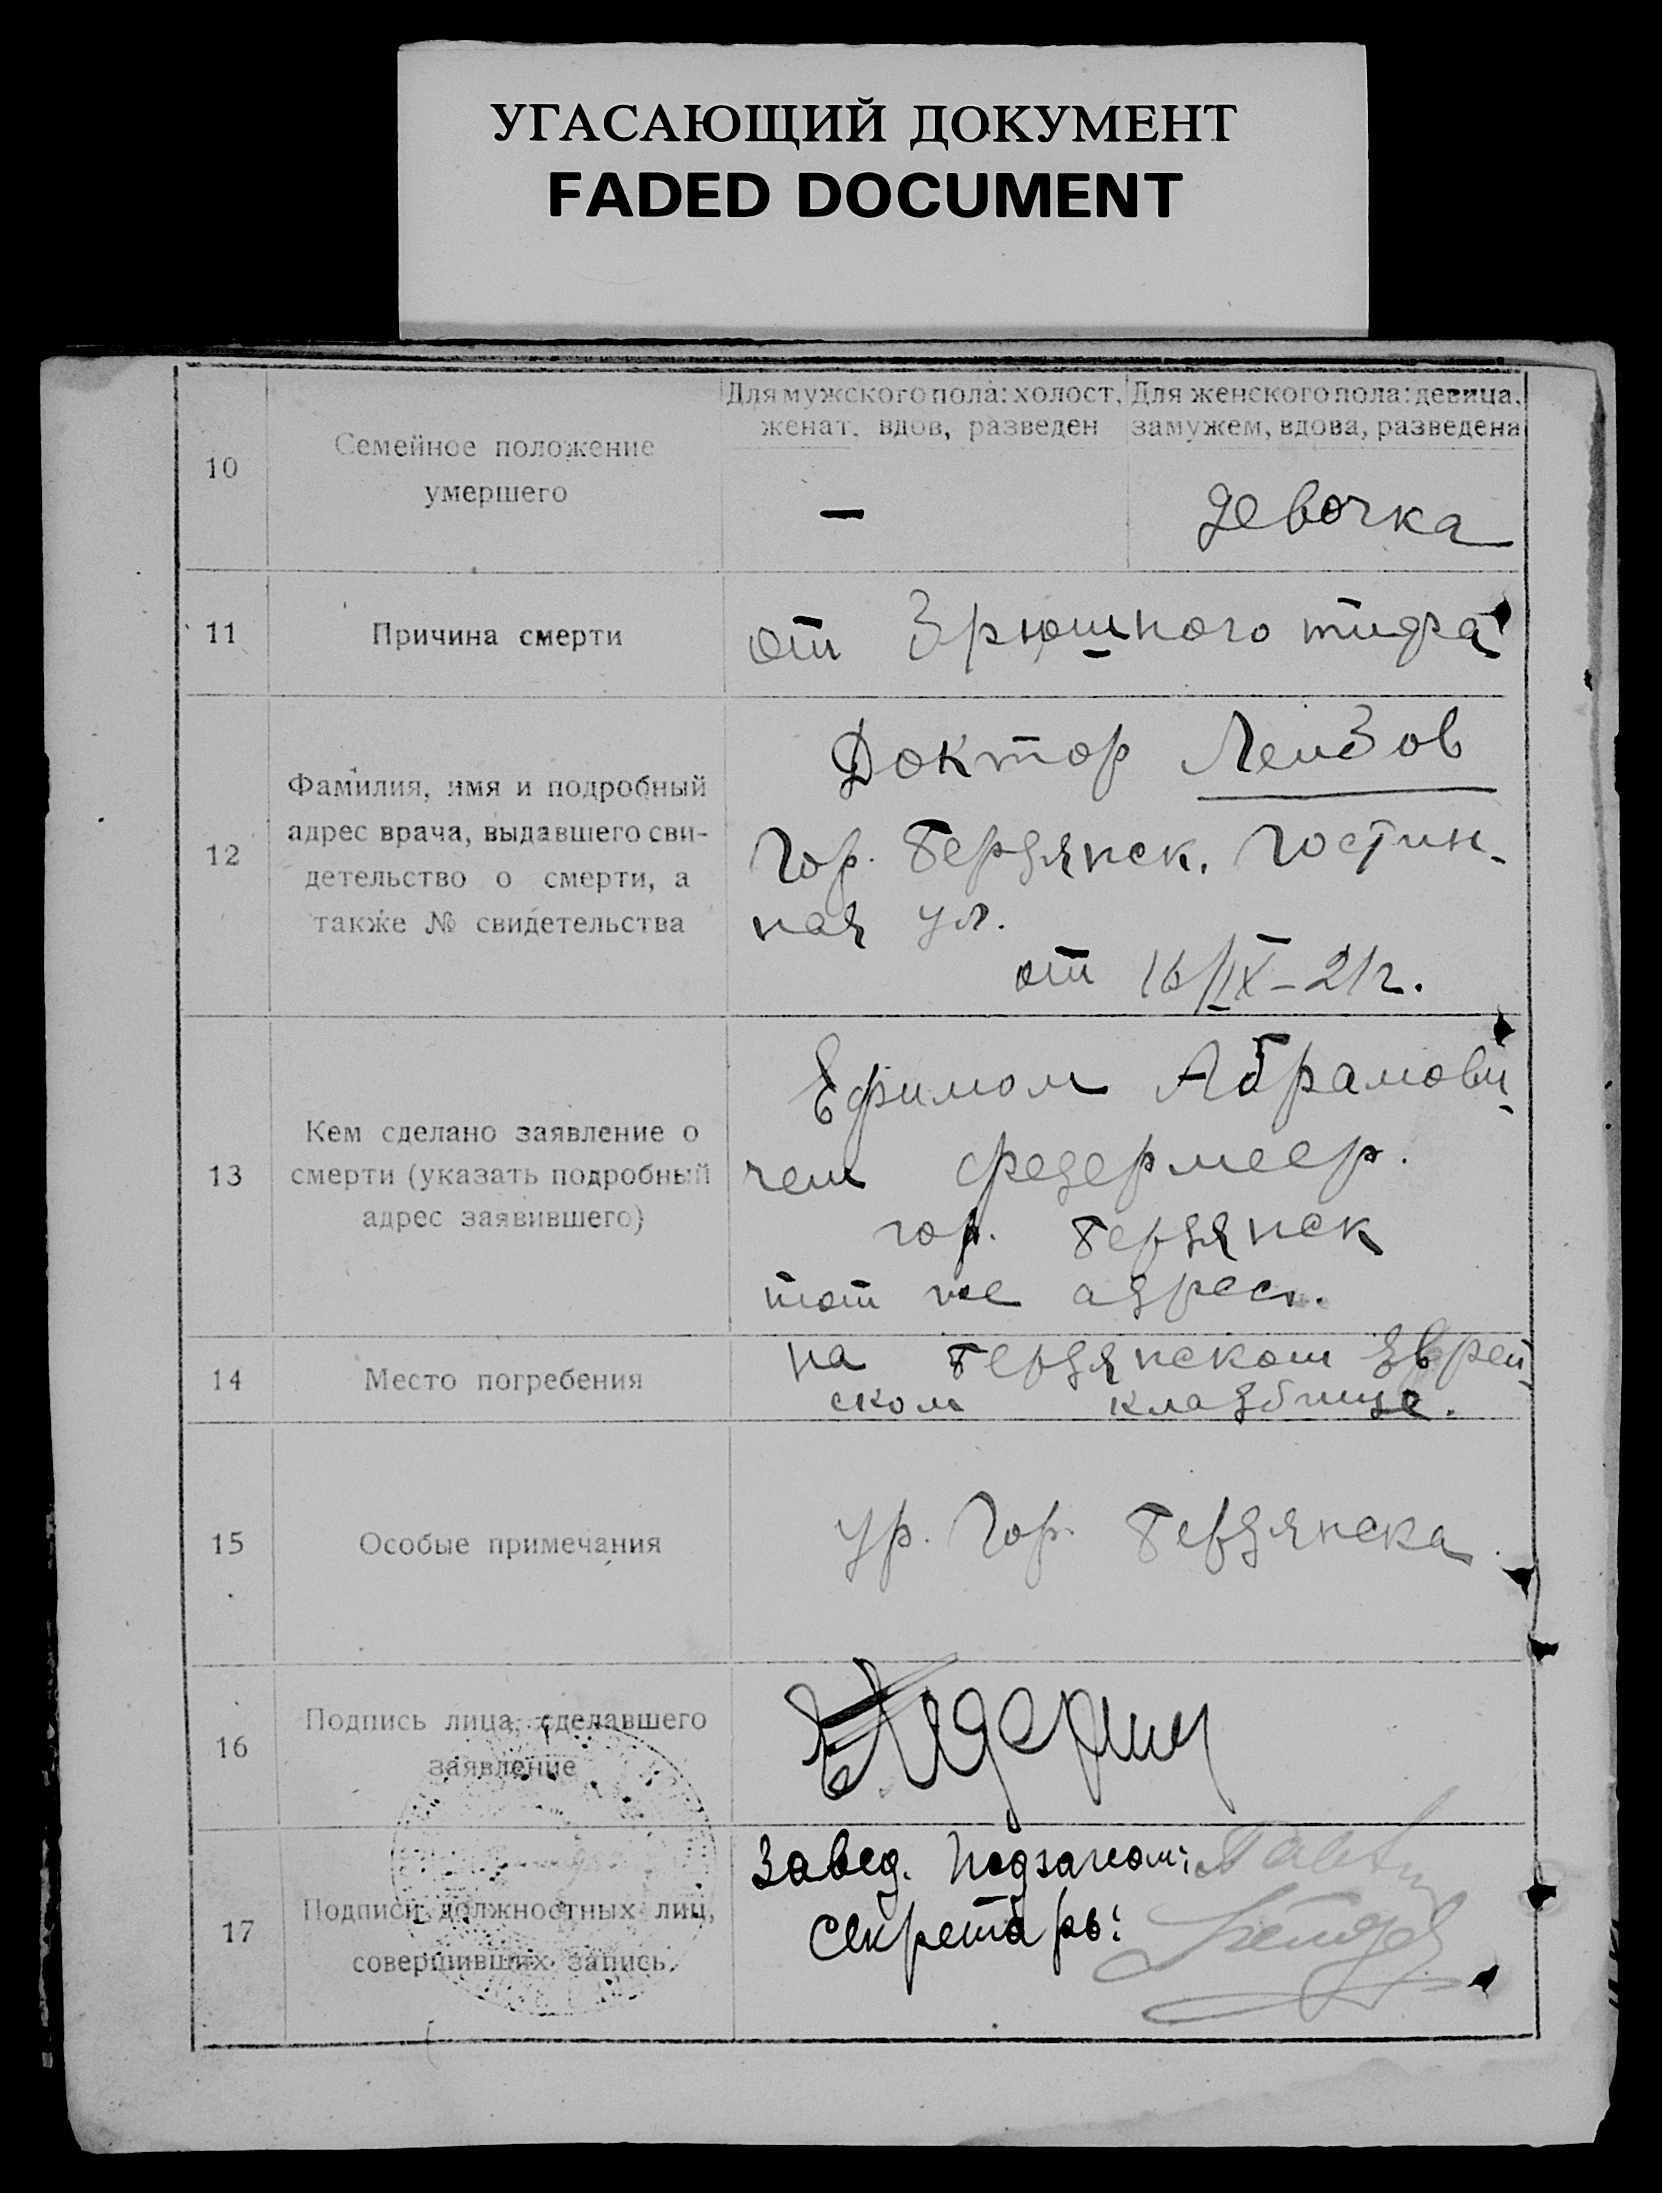 УГАСАЮЩИЙ ДОКУМЕНТ
FADED DOCUMENT
10
Семейное положение
умершего
Для мужского пола: холост,
женат, вдов, разведен
—
Для женского пола: девица,
замужем, вдова, разведена
девочка
11
Причина смерти
от брюшного тифа
12
Фамилия, имя и подробный
адрес врача, выдавшего сви-
детельство о смерти, а
также № свидетельства
Доктор Лейбов
Гор. Бердянск. Гостин-
ная ул.
от 16/IX-21г.
13
Кем сделано заявление о
смерти (указать подробный
адрес заявившего)
Ефимом Абрамови
чем Федермеер.
гор. Бердянск
тот же адрес.
14
Место погребения
на Бердянском Еврей
ском кладбище.
15
Особые примечания
ур. Гор. Бердянска.
16
Подпись лица, сделавшего
заявление
17
Подписи должностных лиц,
совершивших запись.
Завед. Подзагсом:
Секретарь: